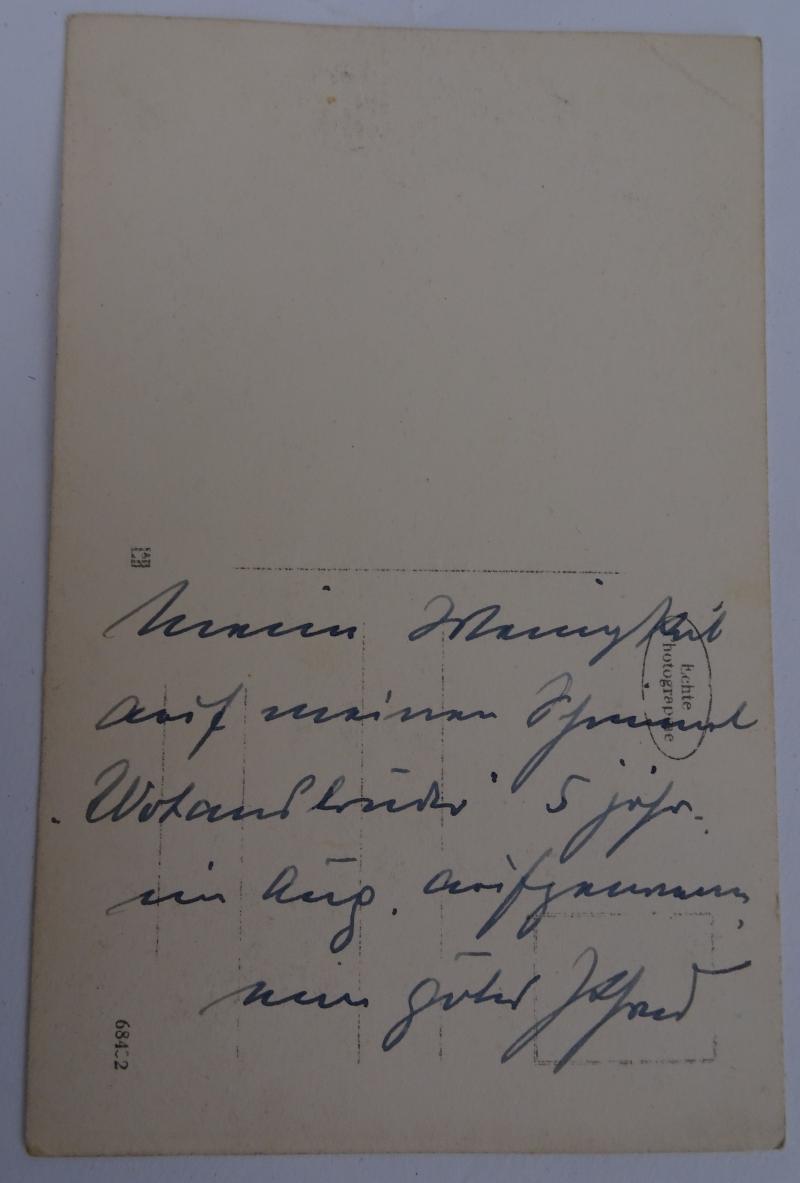 Meine Wenigkeit
auf meinen Schimmel
"Wotansbruder" 5 jähr.
im Aug. aufgenommen,
ein gutes Pferd
Echte
Photographie
68432